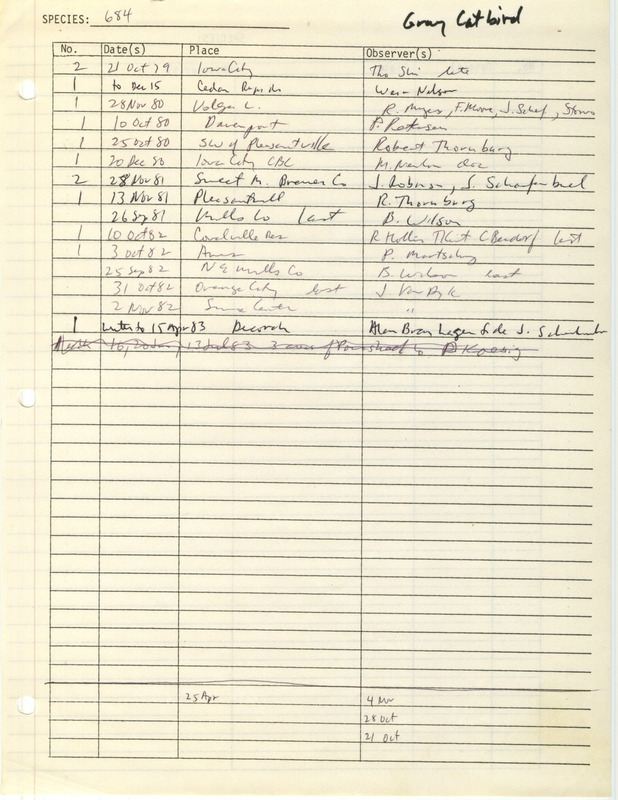 SPECIES: 684 Gray Catbird
No. Date(s) Place Observer(s)
2 21 Oct 79 Iowa City late
1 to Dec 15 Cedar Rapids Nelson
1 28 Nov 80 Volga L. R. Myers, F. Moore, J. Schaf,
1 10 Oct 80 Davenport P. Petersen
1 25 Oct 80 SW of Pleasantville Robert Thornburg
1 20 Dec 80 Iowa City CBC M. Newlon doc
2 28 Nov 81 Sweet M. Bremer Co J. Robinson, S. Schaufenbuel
1 13 Nov 81 Pleasantville R. Thornburg
26 Sep 81 Mills Co last B. Wilson
1 10 Oct 82 Coralville Res R Hollis T Kent C Bendorf last
1 3 Oct 82 Ames P. Martsching
25 Sep 82 NE Mills Co B. Wilson last
31 Oct 82 Orange City last J Van Dyk
2 Nov 82 Sioux Center "
1 winter to 15 Apr 83 Decorah Alan Bray Hagen fide J. Schwabenbau
13 Jul 83 3 Koenig
25 Apr 4 Nov
28 Oct
21 Oct